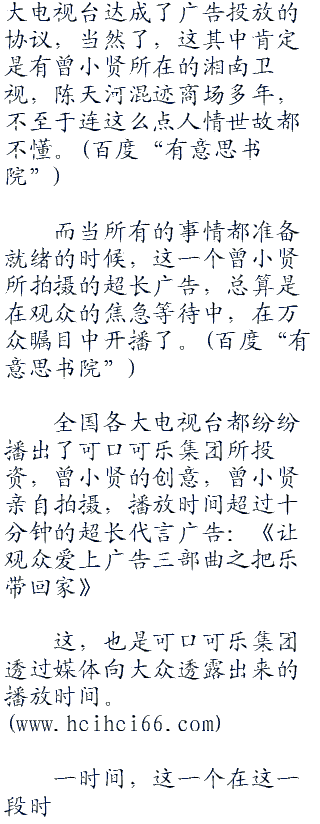 大电视台达成了广告投放的
协议，当然了，这其中肯定
是有曾小贤所在的湘南卫
视，陈天河混迹商场多年，
不至于连这么点人情世故都
不懂。(百度“有意思书
院”)
而当所有的事情都准备
就绪的时候，这一个曾小贤
所拍摄的超长广告，总算是
在观众的焦急等待中，在万
众瞩目中开播了。(百度“有
意思书院”)
全国各大电视台都纷纷
播出了可口可乐集团所投
资，曾小贤的创意，曾小贤
亲自拍摄，播放时间超过十
分钟的超长代言广告：《让
观众爱上广告三部曲之把乐
带回家》
这，也是可口可乐集团
透过媒体向大众透露出来的
播放时间。
(www.hcihci66.com)
一时间，这一个在这一
段时